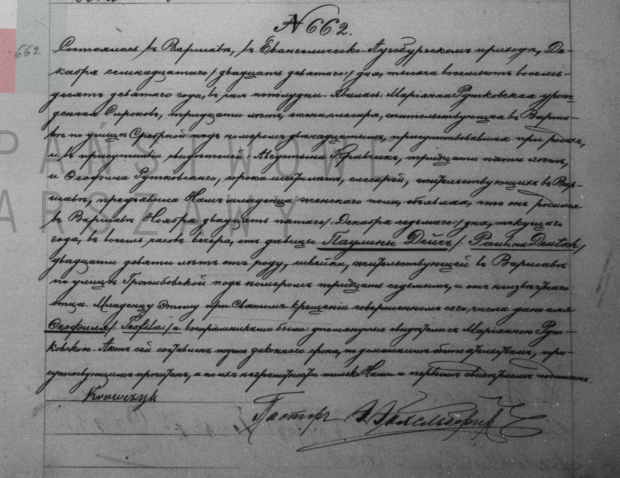 N 662.
662
Состоялось въ Варшавѣ, въ Евангелическо-Аугсбургскомъ приходѣ, Де-
кабря семнадцатаго / двадцать девятаго / дня, тысяча восемьсотъ восемь-
десятъ девятаго года, въ часа пополудни. Явилась Маріанна Рутковская урож-
денная тридцати лѣтъ, жена слесаря, жительствующая въ Варша-
вѣ по улицѣ Сребрной подъ номеромъ двѣнадцатымъ, присутствовавшая при родахъ,
и въ присутствіи свидѣтелей Кравчика, тридцати пяти лѣтъ,
и Ѳеофила Рутковскаго, сорока лѣтъ, слесарей, жительствующихъ въ Вар-
шавѣ, предъявила Намъ младенца женскаго пола, объявляя, что онъ родился
въ Варшавѣ Ноября двадцать пятаго / Декабря седьмаго / дня, текущаго
года, въ восемь часовъ вечера, отъ дѣвицы Паулины Дейчъ / Paulina /
двадцати девяти лѣтъ отъ роду, швейки, жительствующей въ Варшавѣ
по улицѣ Гржибовской подъ номеромъ тридцать седьмымъ, и отъ неизвѣстнаго
отца. Младенцу этому при Святомъ крещеніи совершенномъ сего числа дано имя
Ѳеофиля / Teofila / а воспріемниками были упомянутые свидѣтели съ Маріанною Рут-
ковскою. Актъ сей составленъ по донесшимъ обстоятельствамъ, при-
сутствующимъ прочитанъ, а по ихъ неграмотности только Нами и первымъ свидѣтелемъ подписанъ
Krawczyk
Пасторъ
PAŃSTWOWE
WARSZAWY